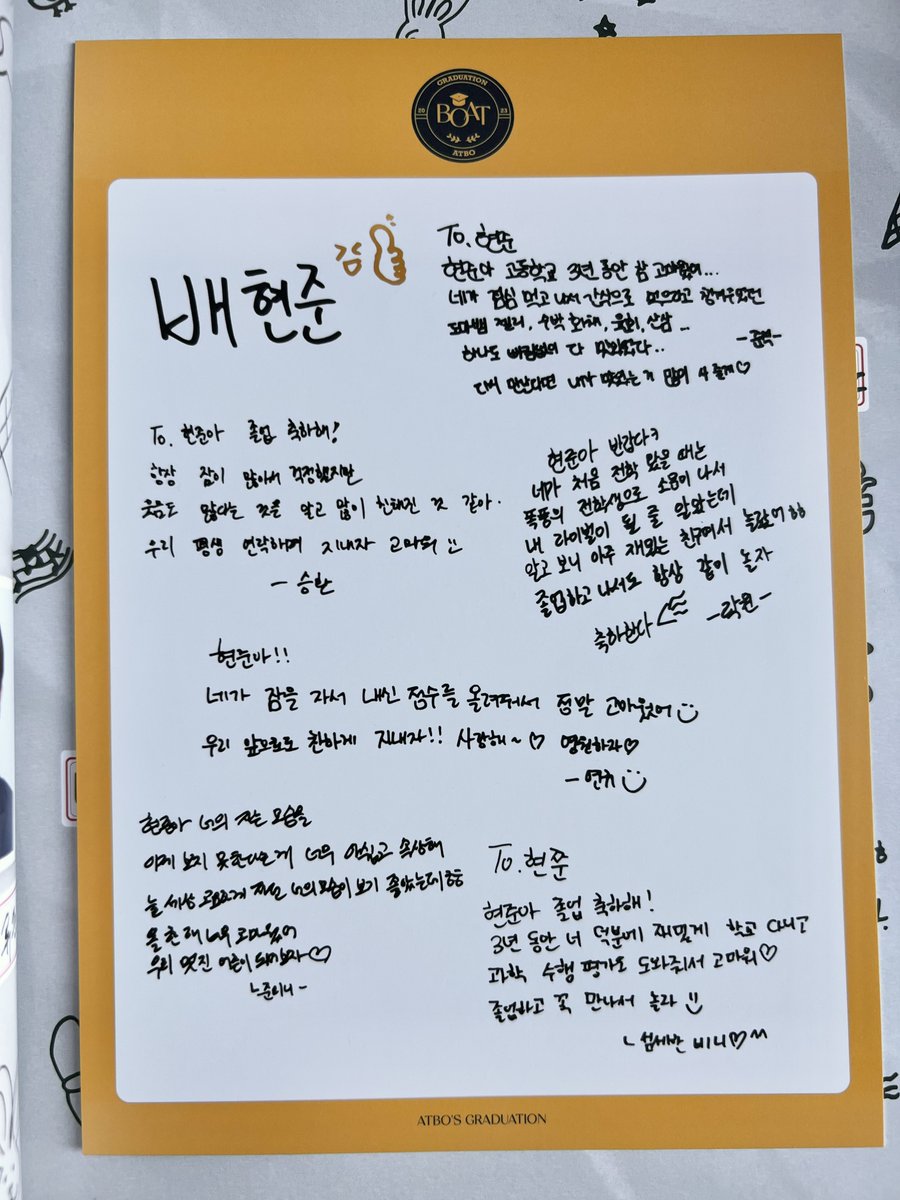 GRADUATION
20 BOAT 23
ATBO
배현준
김
To. 현준
현준아 고등학교 3년 동안 참 고마웠어...
네가 점심 먹고 나서 간식으로 먹으라고 챙겨주었던
젤리, 수박 화채, 육회, 산삼 ...
하나도 빠짐없이 다 맛있었다..
-준석-
다시 만난다면 내가 맛있는 거 많이 사 줄게♡
To. 현준아 졸업 축하해!
항상 잠이 많아서 걱정했지만
웃음도 많다는 것을 알고 많이 친해진 것 같아.
우리 평생 연락하며 지내자 고마워
- 승환
현준아 반갑다ㅋ
네가 처음 전학 왔을 때는
폭풍의 전학생으로 소용이 나서
내 라이벌이 될 줄 알았는데
알고 보니 아주 재밌는 친구여서 놀랐어ㅎㅎ
졸업하고 나서도 항상 같이 놀자
축하한다 -락원-
현준아!!
네가 잠을 자서 내신 점수를 올려줘서 정말 고마웠어
우리 앞으로도 친하게 지내자!! 사랑해~♡ 영원하자♡
- 연규
현준아 너의 자는 모습을
이제 보지 못한다는게 너무 아쉽고 속상해
늘 세상 고요하게 자던 너의 모습이 보기 좋았는데ㅎㅎ
너무 고마웠어
우리 멋진 어른이 되어보자♡
준이니-
To. 현준
현준아 졸업 축하해!
3년 동안 너 덕분에 재밌게 학교 다니고
과학 수행 평가도 도와줘서 고마워♡
졸업하고 꼭 만나서 놀자
섬세한 비니♡
ATBO'S GRADUATION